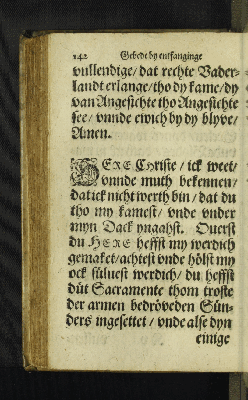 142 Gebedt by entfanginge
vullendige/ dat rechte Vader-
landt erlange/ tho dy kame/ dy
van Angesichte tho Angesichte
see/ vnnde ewich by dy blyve/
Amen.
HERE Christe/ ick weet/
vnnde muth bekennen/
dat ick nicht werth bin/ dat du
tho my kamest/ vnde vnder
myn Dack yngahst. Overst
du HERE heffst my werdich
gemaket/ achtest vnde höldst my
ock süluest werdich/ du heffst
düt Sacramente thom troste
der armen bedröveden Sün-
ders ingesettet/ vnde alse dyn
einige